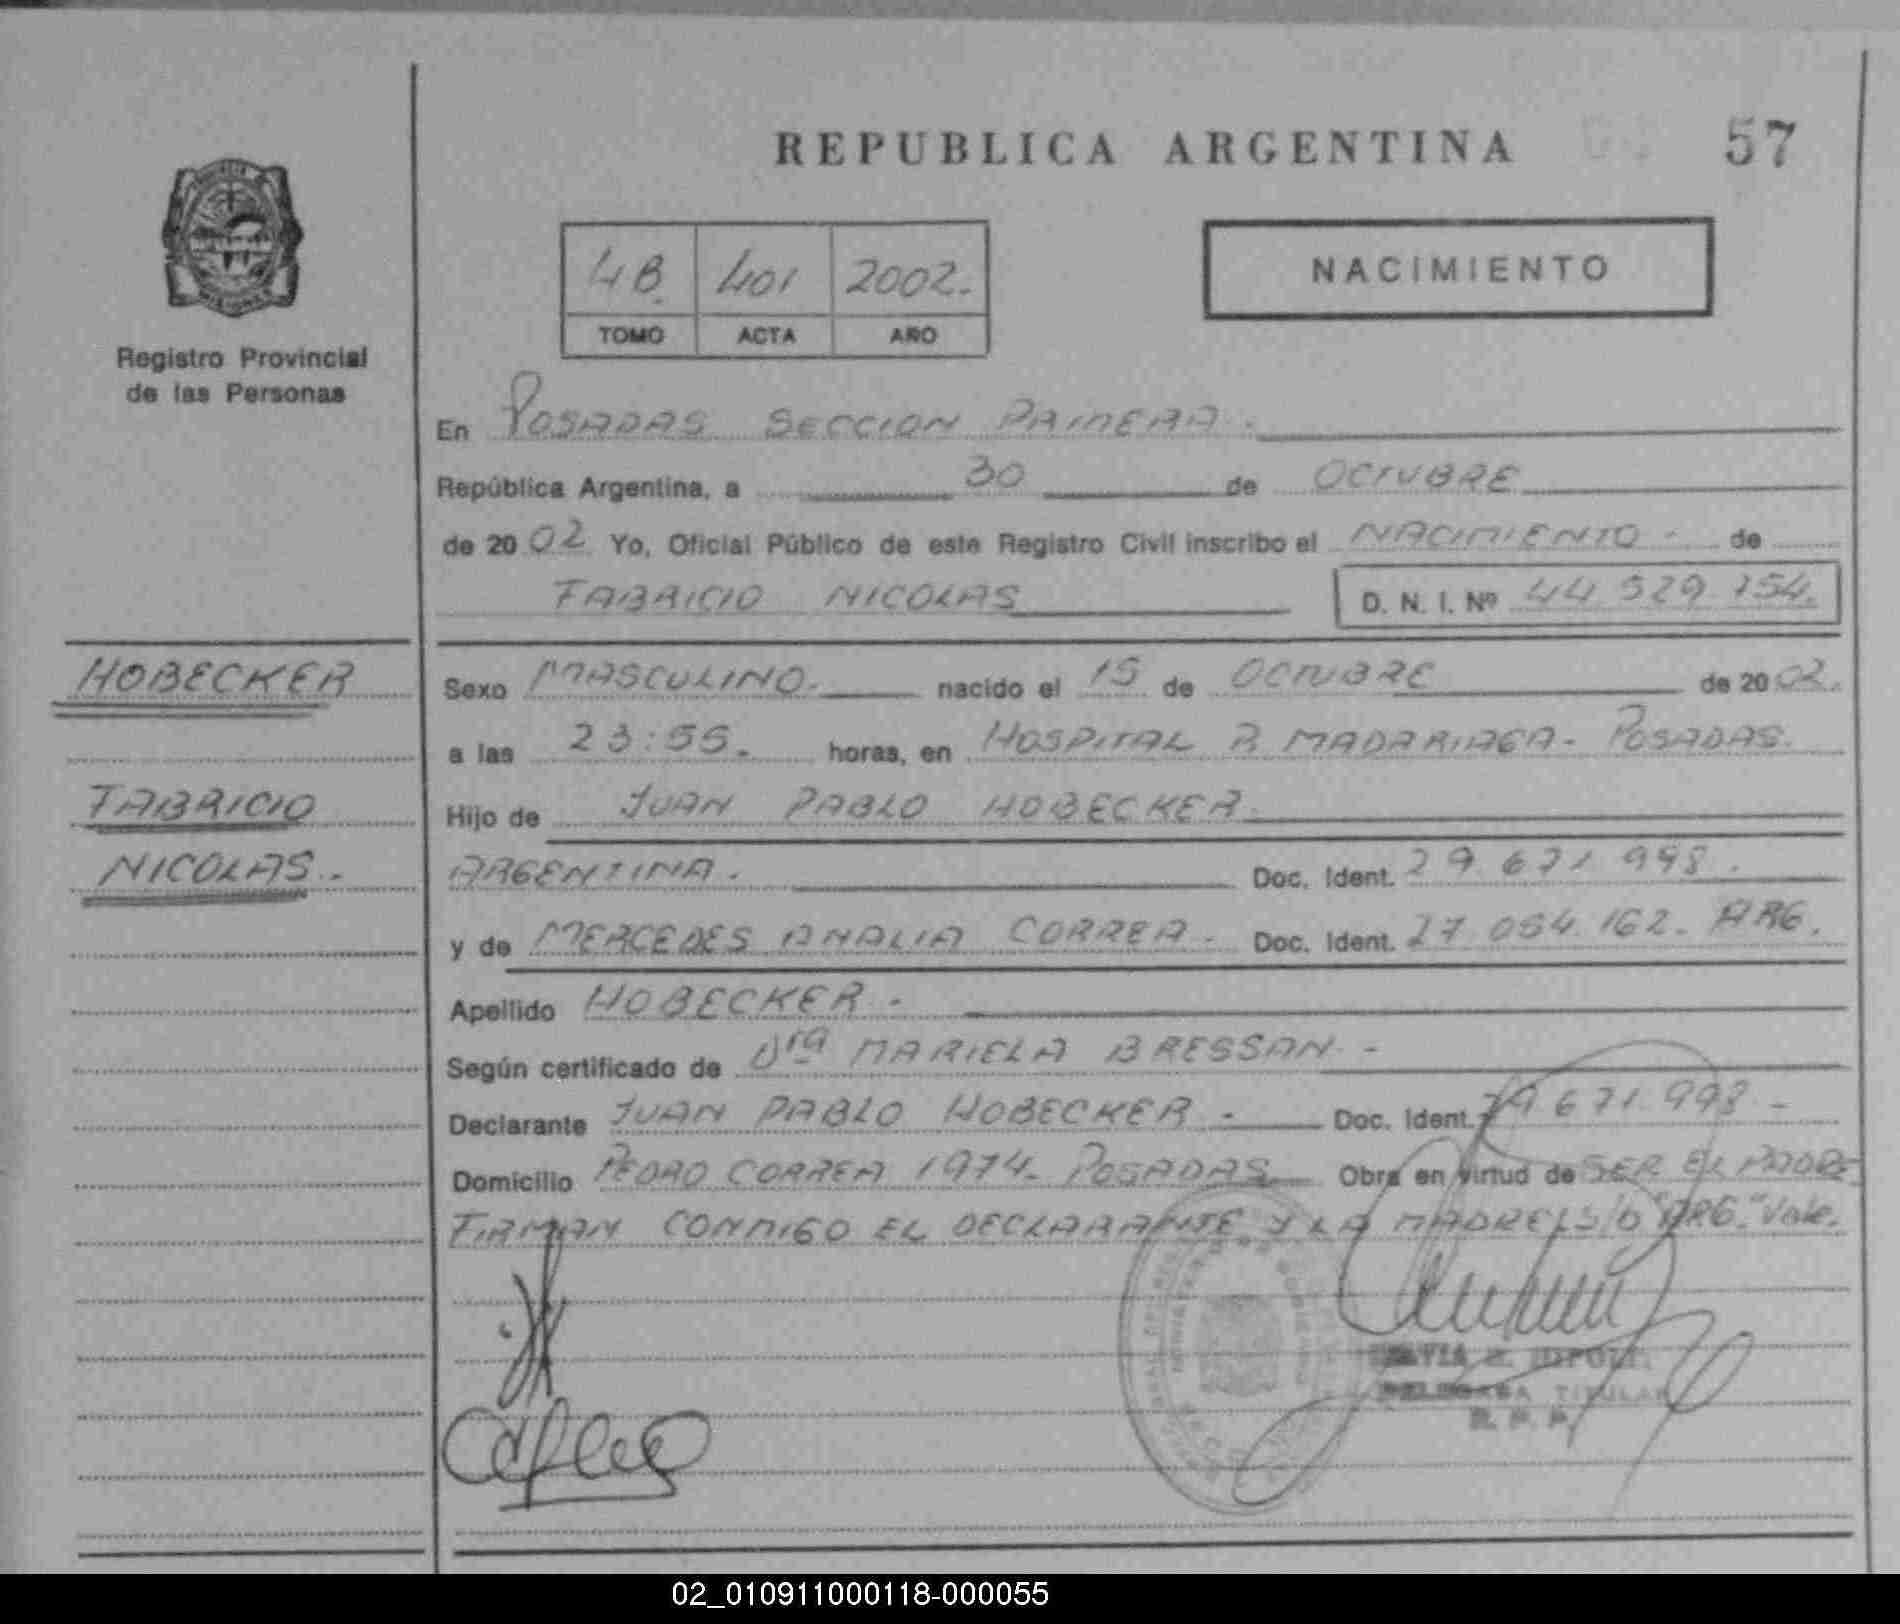 REPUBLICA ARGENTINA 57
4B. 401 2002.
TOMO ACTA AÑO
NACIMIENTO
Registro Provincial
de las Personas
En POSADAS SECCION PRIMERA.
República Argentina, a 30 de OCTUBRE
de 2002 Yo, Oficial Público de este Registro Civil inscribo el NACIMIENTO - de
FABRICIO NICOLAS D. N. I. Nº 44 529 754.
HOBECKER
FABRICIO
NICOLAS.-
Sexo MASCULINO.- nacido el 15 de OCTUBRE de 2002.
a las 23:55. horas, en HOSPITAL R. MADARIAGA - POSADAS.
Hijo de JUAN PABLO HOBECKER.
ARGENTINA. Doc. Ident. 29.671.998.
y de MERCEDES ANALIA CORREA. Doc. Ident. 27.054.162. ARG.
Apellido HOBECKER.
Según certificado de Dra MARIELA BRESSAN.-
Declarante JUAN PABLO HOBECKER.- Doc. Ident. 29.671.998-
Domicilio PEDRO CORREA 1974- POSADAS Obra en virtud de SER EL PADRE
FIRMAN CONMIGO EL DECLARANTE Y LA MADRE "ARG." Vale.
TITULAR
R. P. P.
02_010911000118-000055